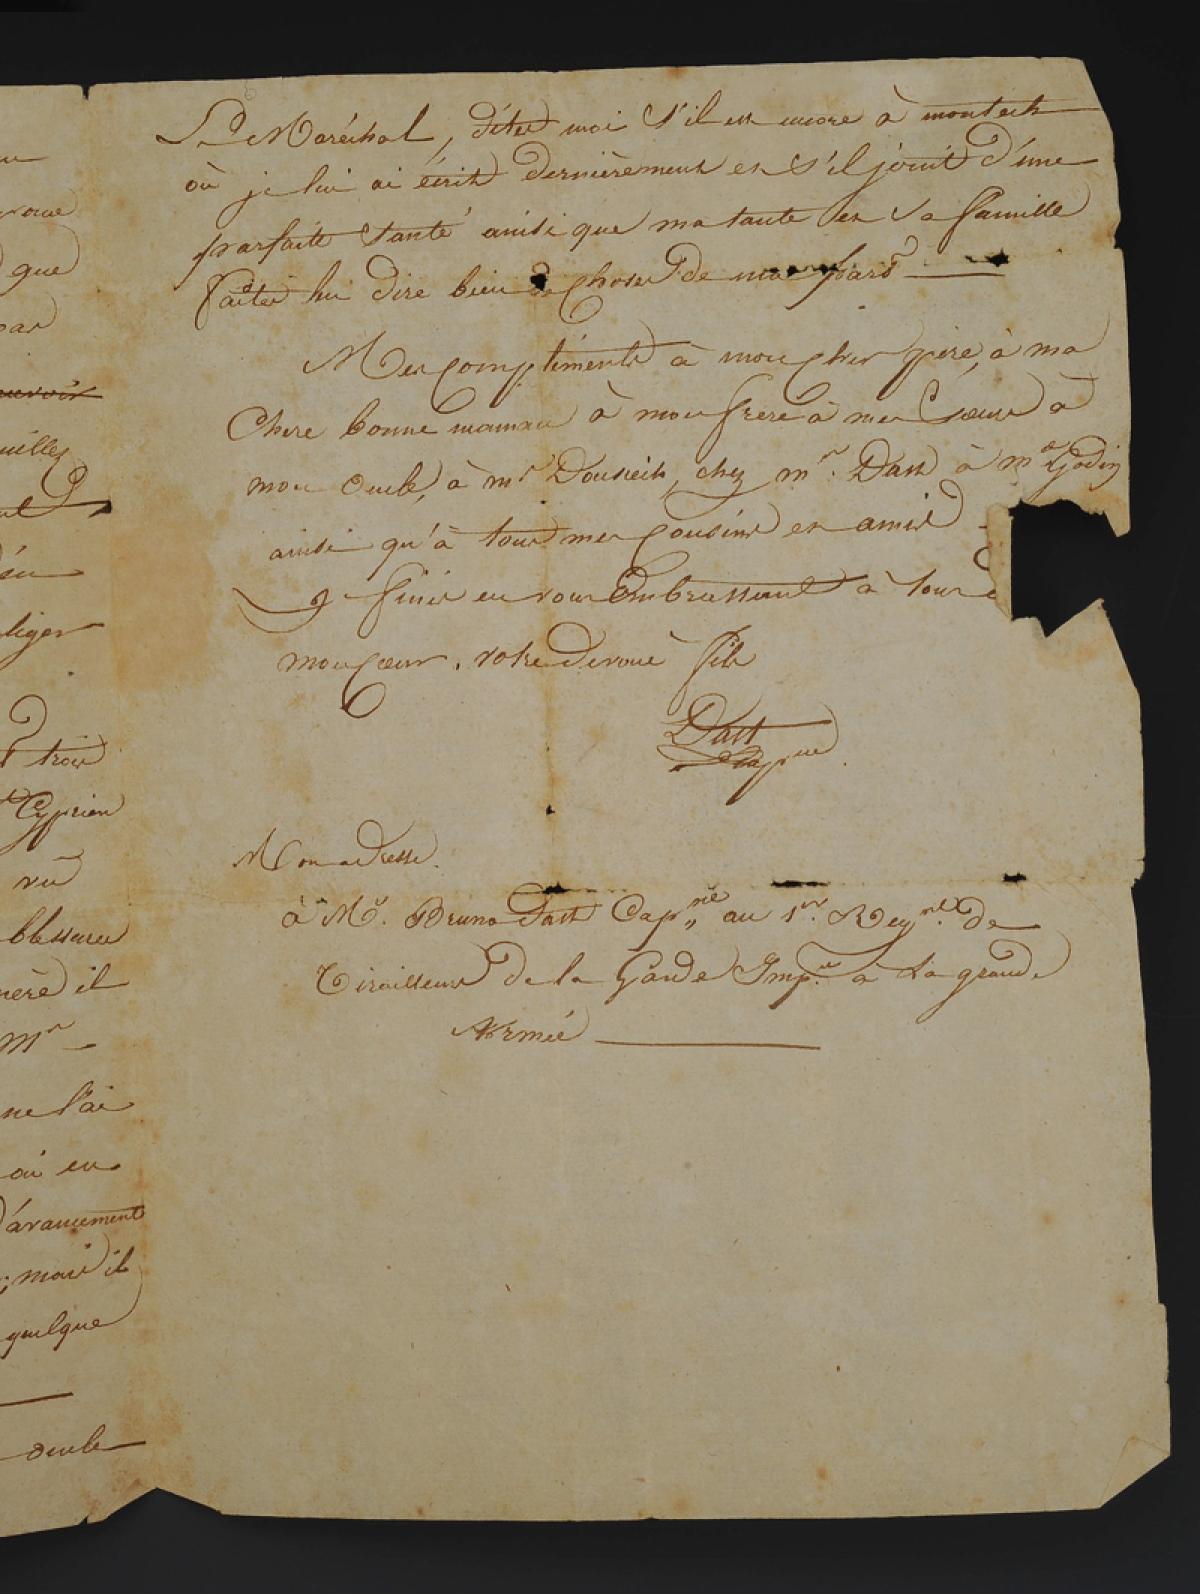 u
voue
que
par
pouvoir
uillez
su
liger
trois
Cyprien
vu
blessures
mère il
Mr
ne l'ai
ai eu
d'avancement
; mais il
quelque
oncle
Le Maréchal, dites moi s'il est encore à montech
où je lui ai écrit dernièrement et s'il jouit d'une
parfaite santé ainsi que ma tante et sa famille
faites lui dire bien de choses de ma part
Mes compliments à mon cher père, à ma
Chere bonne maman à mon frere à mes soeurs à
mon oncle, à mr Dousieih, chez mr. Dast à me Godin
ainsi qu'à tous mes cousins et amis
je finis en vous Embrassant a tous d
mon coeur. votre devoué fils
Dast
Capne
Mon adresse.
à Mr. Bruno Dast Capne au 1er. Regnt. de
Tirailleurs de la Garde Imple a La grande
Armée